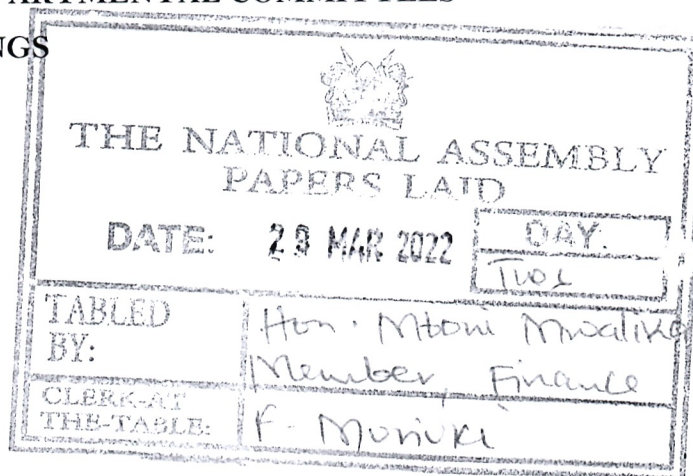 ARTMENTAL COMMITTEES
NGS
THE NATIONAL ASSEMBLY
PAPERS LAID
DATE: 29 MAR 2022
DAY.
Tues
TABLED BY:
Hon. Mboni Mwalika
Member, Finance
CLERK-AT THE-TABLE:
F. Muriuki